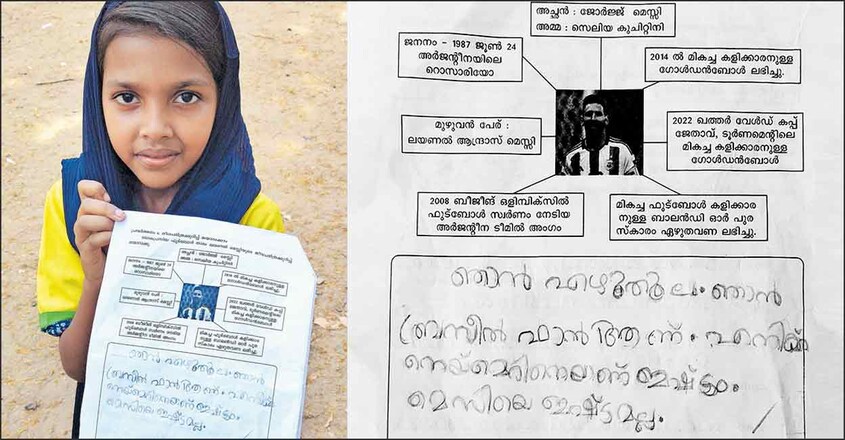 അച്ഛൻ : ജോർജ്ജ് മെസ്സി
അമ്മ : സെലിയ കുചിറ്റിനി
ജനനം - 1987 ജൂൺ 24
അർജന്റീനയിലെ
റൊസാരിയോ
2014 ൽ മികച്ച കളിക്കാരനുള്ള
ഗോൾഡൻബോൾ ലഭിച്ചു.
മുഴുവൻ പേര് :
ലയണൽ ആന്ദ്രാസ് മെസ്സി
2022 ഖത്തർ വേൾഡ് കപ്പ്
ജേതാവ്, ടൂർണമെന്റിലെ
മികച്ച കളിക്കാരനുള്ള
ഗോൾഡൻബോൾ
2008 ബീജീങ് ഒളിമ്പിക്സിൽ
ഫുട്ബോൾ സ്വർണം നേടിയ
അർജന്റീന ടീമിൽ അംഗം
മികച്ച ഫുട്ബോൾ കളിക്കാര
നുള്ള ബാലൻഡി ഓർ പുര
സ്കാരം ഏഴുതവണ ലഭിച്ചു.
ഞാൻ എഴുതൂല. ഞാൻ
ബ്രസീൽ ഫാൻ ആണ്. എനിക്ക്
നെയ്മെറിനെയാണ് ഇഷ്ടം.
മെസിയെ ഇഷ്ടമല്ല.